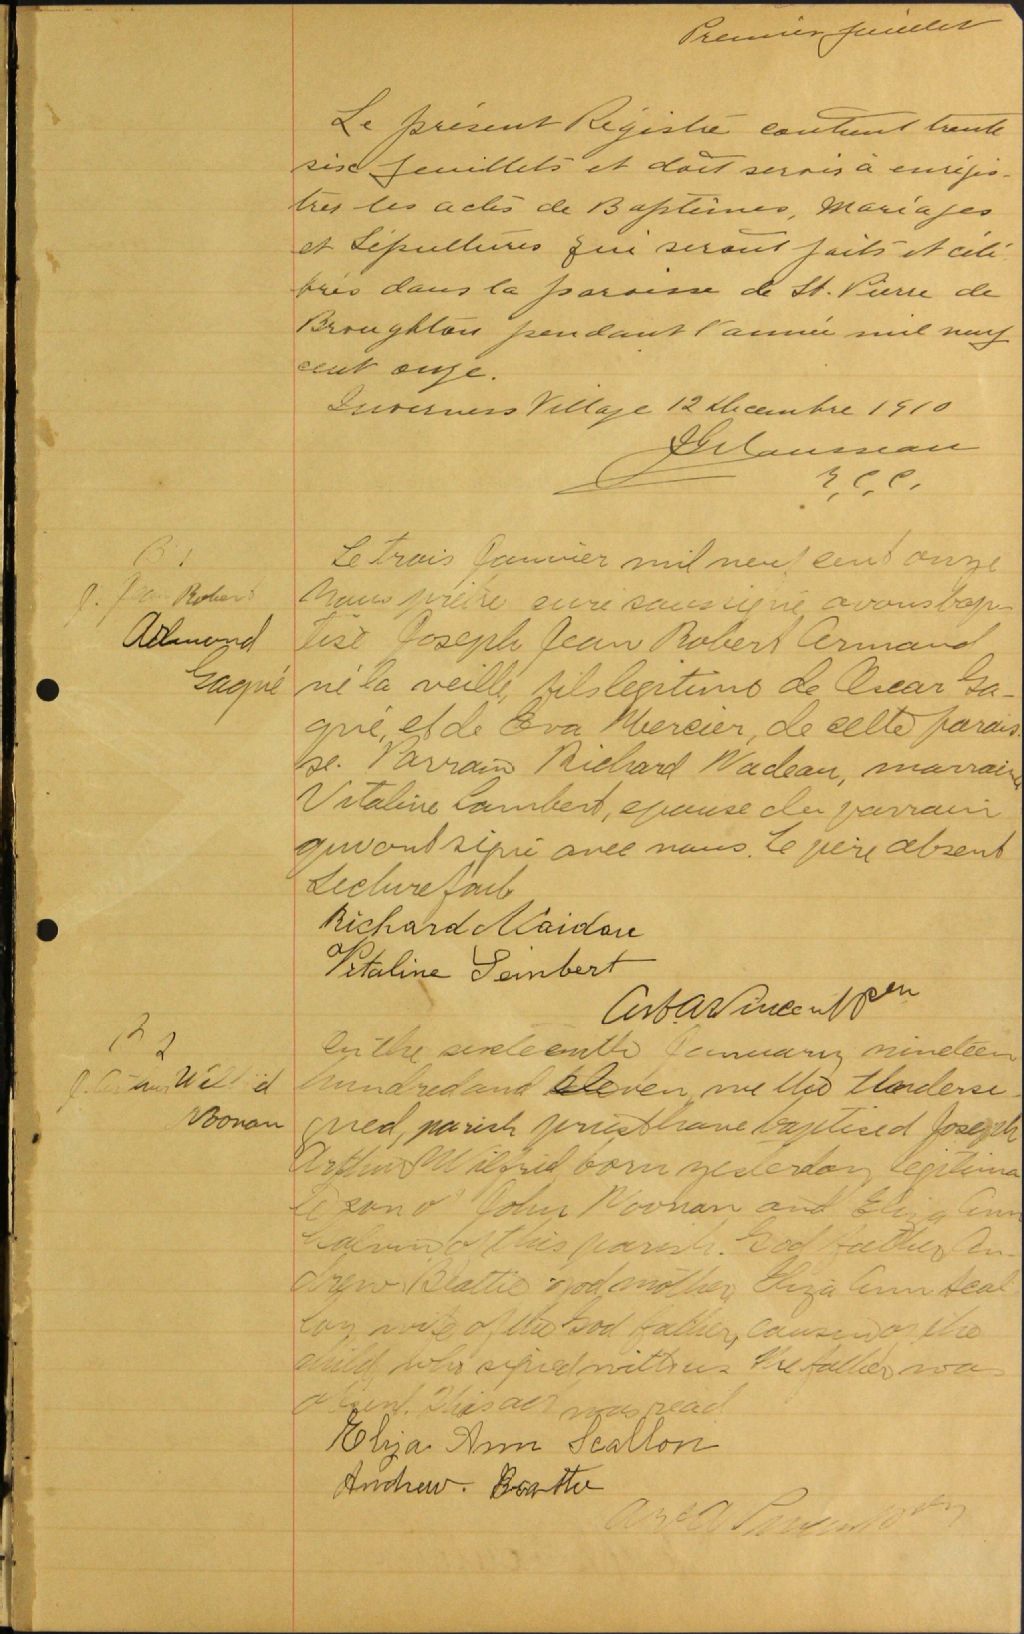 Premier feuillet
Le présent Régistre contient trente
six feuillets et doit servir à enrégis-
trer les actes de Baptêmes, Mariages
et Sépultures qui seront faits et célé-
brés dans la paroisse de St. Pierre de
Broughton pendant l'année mil neuf
cent onze.
Inverness Village 12 Décembre 1910
B 1
J. Jean Robert
Armand
Gagné
Le trois Janvier mil neuf cent onze
nous prêtre curé soussigné avons bap-
tisé Joseph Jean Robert Armand
né la veille, fils légitime de Oscar Ga-
gné, et de Eva Mercier, de cette parois-
se. Parrain Richard Nadeau, marraine
Vitaline Lambert, épouse du parrain
qui ont signé avec nous. Le père absent
Lecture faite
Richard Naidau
Vitaline Leinbert
B 2
J. Arthur Wilfrid
Noonan
On the sixteenth January nineteen
hundred and eleven we the Underse-
gned, parish priest have baptised Joseph
Arthur Wilfrid born yesterday legitima-
te son of John Noonan and Eliza Ann
of this parish. God father An-
drew Beattie godmother Eliza Ann Scal-
lon wife of the God father, cousin of the
child, who signed with us. The father was
absent. This act was read
Eliza Ann Scallon
Andrew. Beattie